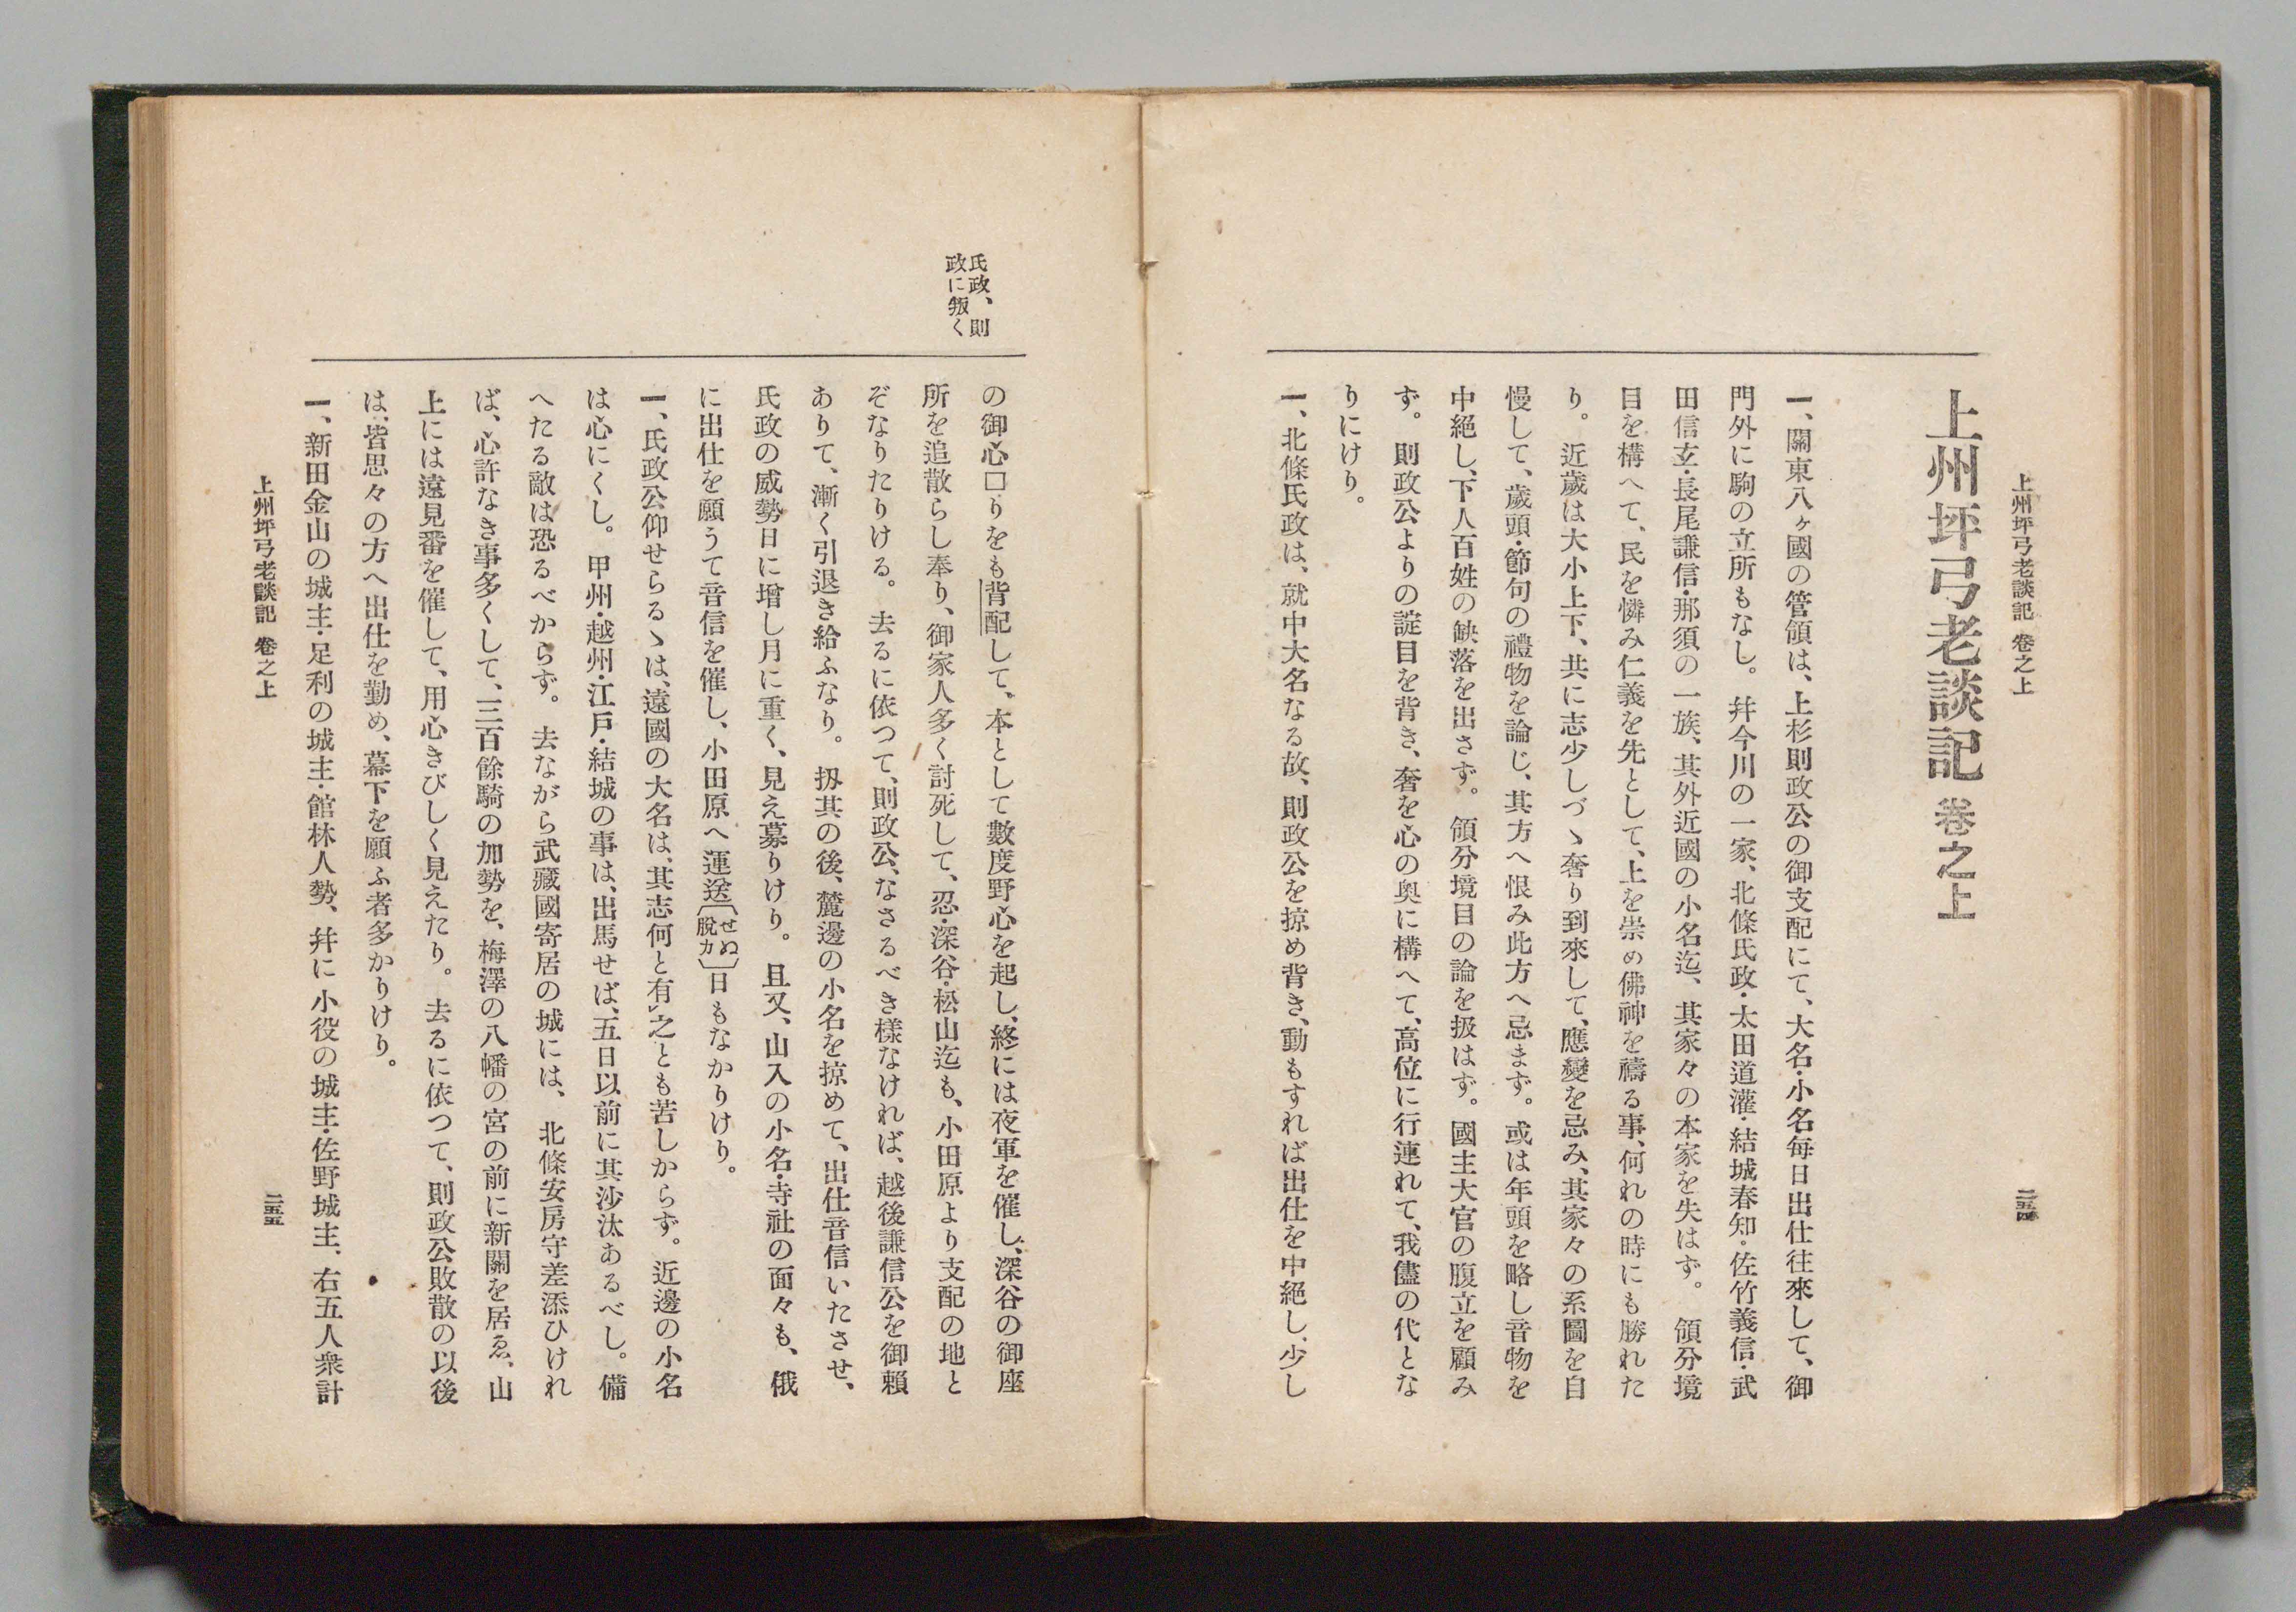 上州坪弓老談記　卷之上
二五四
上州坪弓老談記　卷之上
一、關東八ヶ國の管領は、上杉則政公の御支配にて、大名・小名每日出仕往來して、御
門外に駒の立所もなし。幷今川の一家、北條氏政・太田道灌・結城春知・佐竹義信・武
田信玄・長尾謙信・那須の一族、其外近國の小名迄、其家々の本家を失はず。領分境
目を構へて、民を憐み仁義を先として、上を崇め佛神を禱る事、何れの時にも勝れた
り。近歲は大小上下、共に志少しづゝ奢り到來して、應變を忌み、其家々の系圖を自
慢して、歲頭・節句の禮物を論じ、其方へ恨み此方へ忌まず。或は年頭を略し音物を
中絕し、下人百姓の缺落を出さず。領分境目の論を扱はず。國主大官の腹立を顧み
ず。則政公よりの諚目を背き、奢を心の奧に構へて、高位に行連れて、我儘の代とな
りにけり。
一、北條氏政は、就中大名なる故、則政公を掠め背き、動もすれば出仕を中絕し、少し
氏政、則
政に叛く
の御心□りをも背配して、本として數度野心を起し、終には夜軍を催し、深谷の御座
所を追散らし奉り、御家人多く討死して、忍・深谷・松山迄も、小田原より支配の地と
ぞなりたりける。去るに依つて、則政公、なさるべき樣なければ、越後謙信公を御賴
ありて、漸く引退き給ふなり。扨其の後、麓邊の小名を掠めて、出仕音信いたさせ、
氏政の威勢日に增し月に重く、見え募りけり。且又、山入の小名・寺社の面々も、俄
に出仕を願うて音信を催し、小田原へ運送〔せぬ脫カ〕日もなかりけり。
一、氏政公仰せらるゝは、遠國の大名は、其志何と有レ之とも苦しからず。近邊の小名
は心にくし。甲州・越州・江戶・結城の事は、出馬せば、五日以前に其沙汰あるべし。備
へたる敵は恐るべからず。去ながら武藏國寄居の城には、北條安房守差添ひけれ
ば、心許なき事多くして、三百餘騎の加勢を、梅澤の八幡の宮の前に新關を居ゑ、山
上には遠見番を催して、用心きびしく見えたり。去るに依つて、則政公敗散の以後
は、皆思々の方へ出仕を勤め、幕下を願ふ者多かりけり。
一、新田金山の城主・足利の城主・館林人勢、幷に小役の城主・佐野城主、右五人衆計
上州坪弓老談記　卷之上
二五五